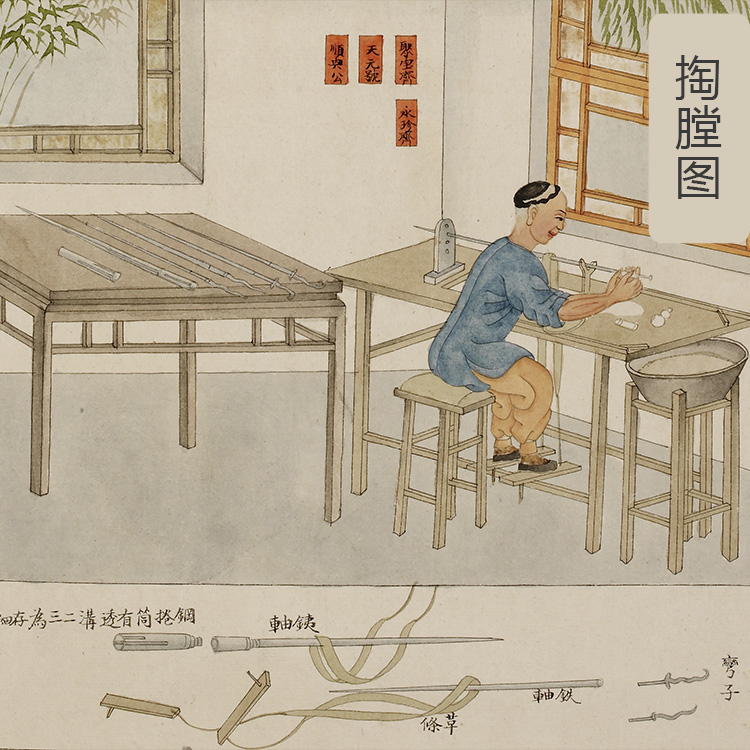 掏膛图
順興公
天元號
聚寶齋
永珍齋
鋼捲筒有透溝二三為存細
軸銕
軸鉄
條草
彎子